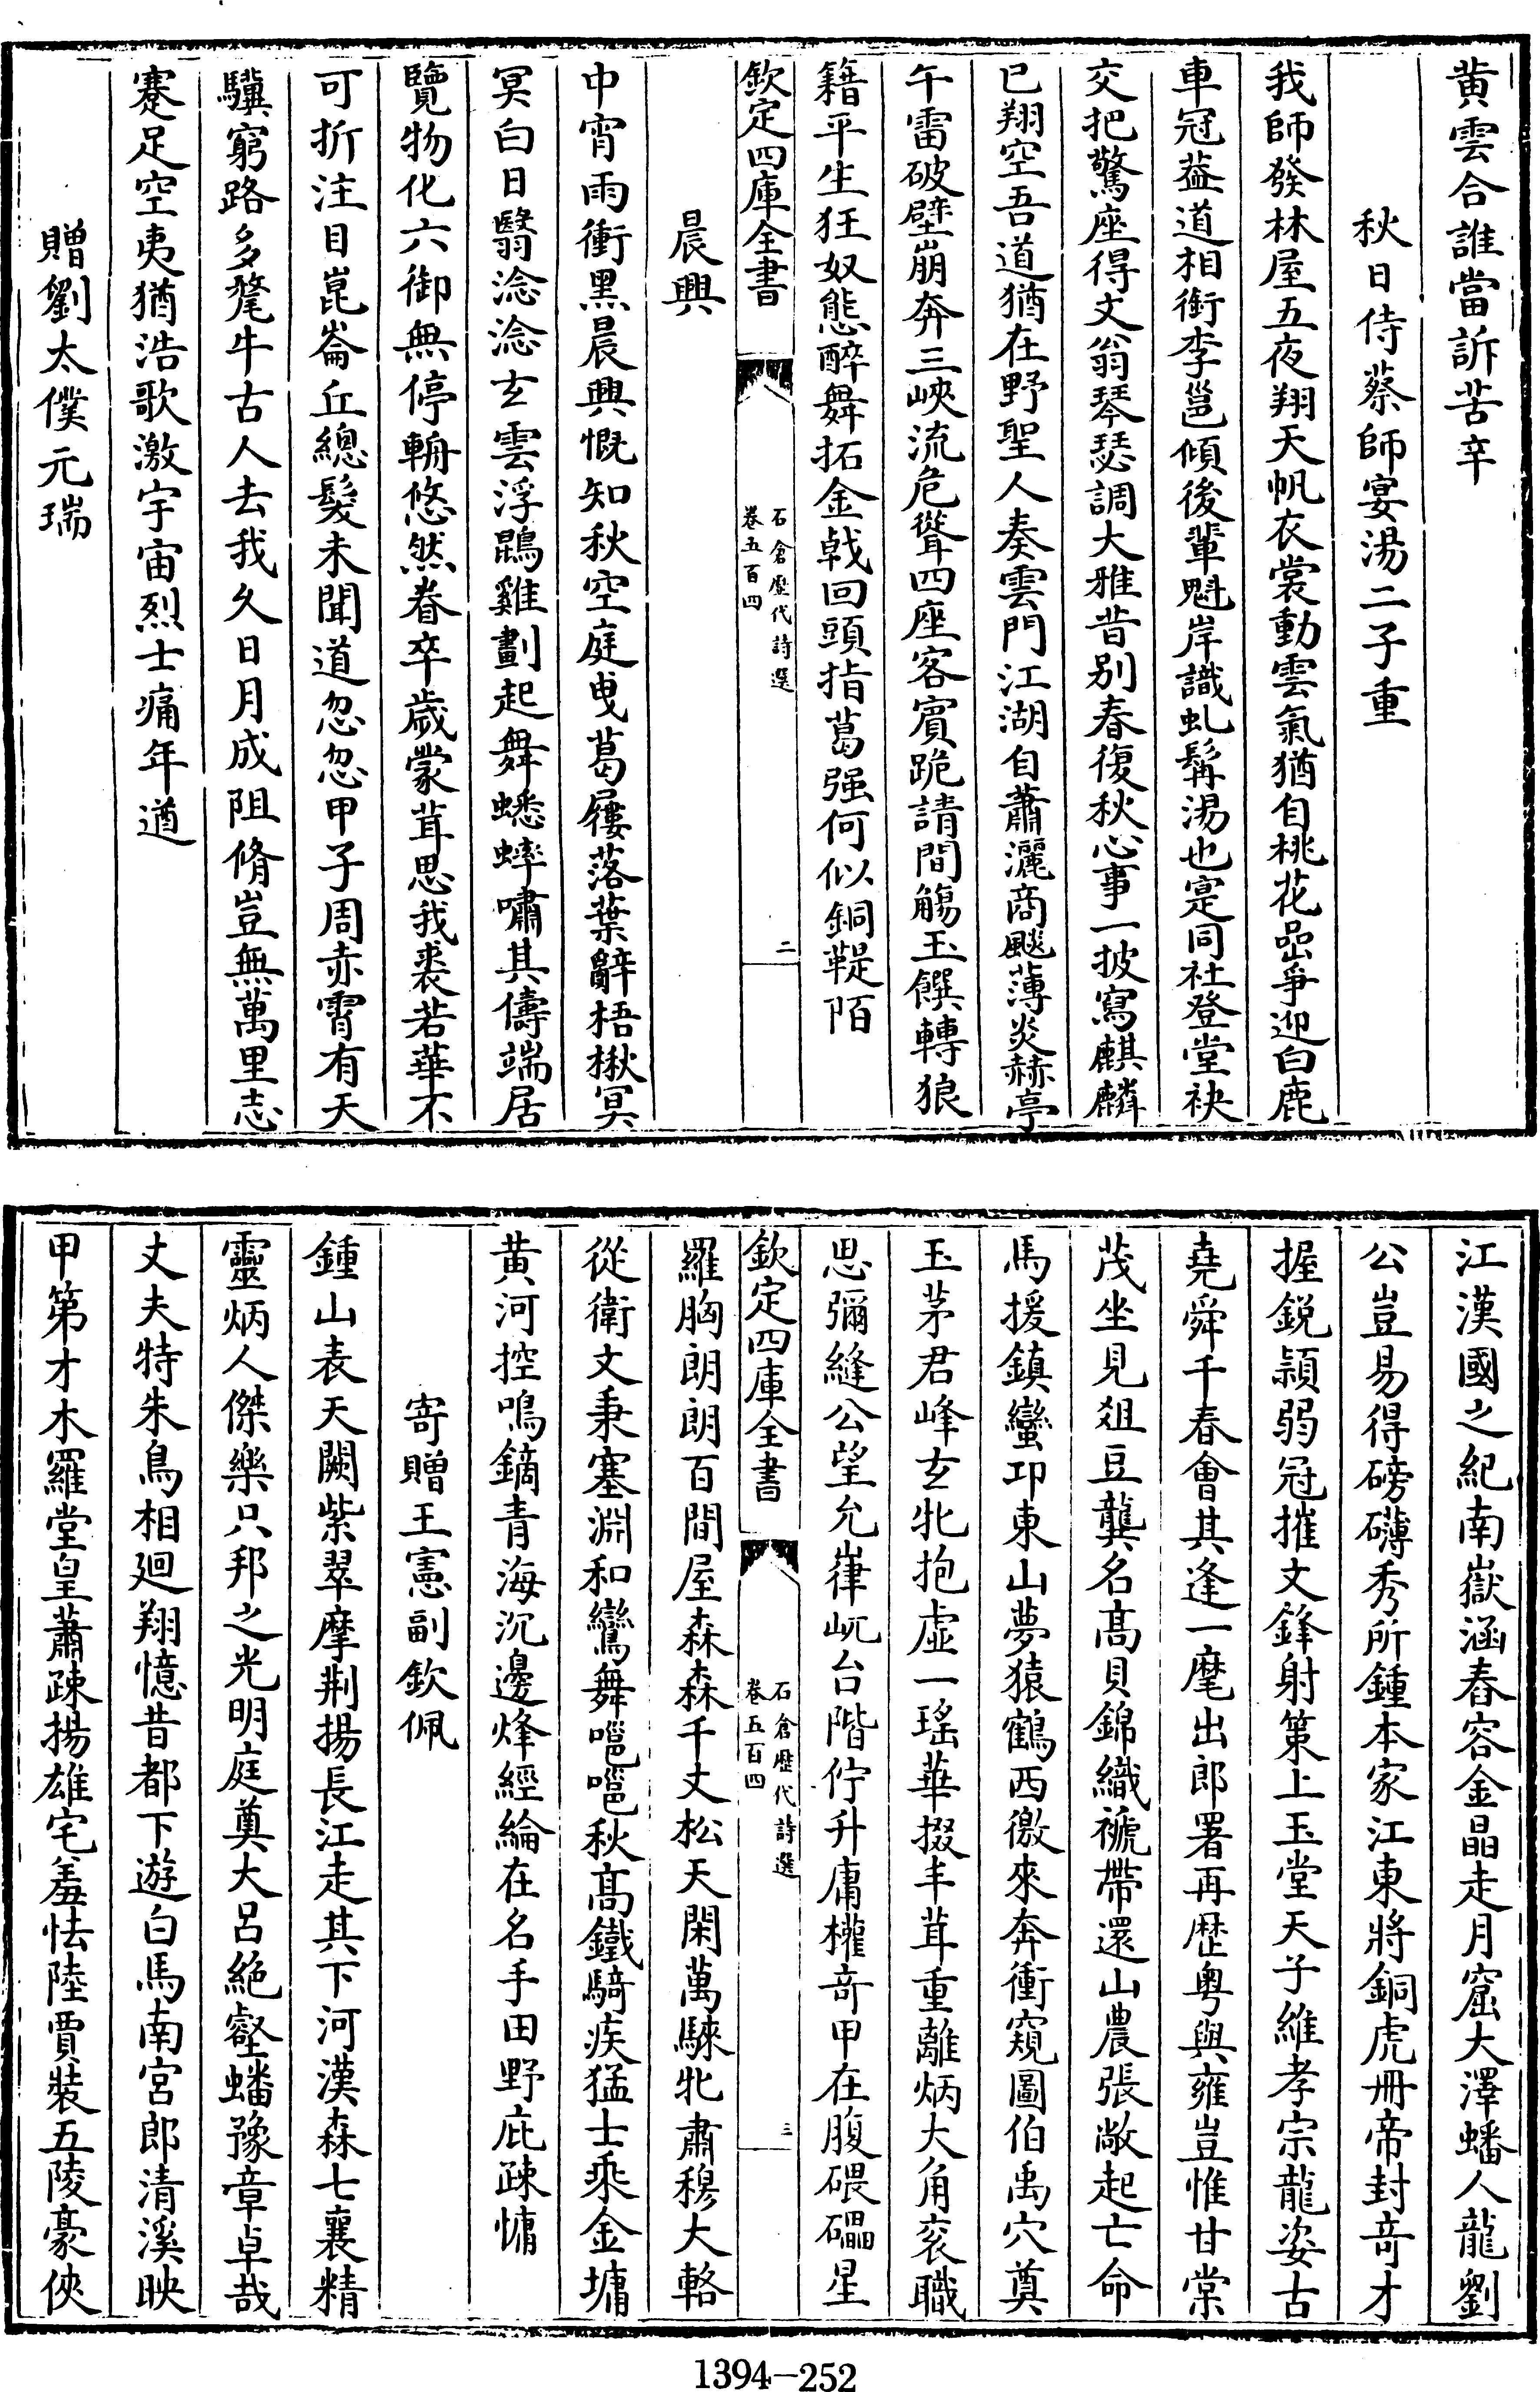 黄雲合誰當訴苦辛
秋日侍蔡師宴湯二子重
我師發林屋五夜翔天帆衣裳動雲氣猶自桃花嵒爭迎白鹿
車冠葢道相銜李邕傾後輩魁岸識虬髯湯也寔同社登堂袂
交把驚座得文翁琴瑟調大雅昔别春復秋心事一披寫麒麟
已翔空吾道猶在野聖人奏雲門江湖自蕭灑商颷薄炎赫亭
午雷破壁崩奔三峽流危聳四座客賓跪請間觴玉饌轉狼
籍平生狂奴態醉舞拓金戟回頭指葛强何似銅鞮陌
欽定四庫全書
石倉歷代詩選
卷五百四
二
晨興
中宵雨衝黑晨興慨知秋空庭曵葛屨落葉辭梧楸冥
冥白日翳淰淰玄雲浮鵾雞劃起舞蟋蟀嘯其儔端居
覽物化六御無停輈悠然眷卒歲蒙茸思我裘若華不
可折注目崑崙丘總髮未聞道忽忽甲子周赤霄有天
驥窮路多髦牛古人去我久日月成阻脩豈無萬里志
蹇足空夷猶浩歌激宇宙烈士痛年遒
贈劉太僕元瑞
江漢國之紀南嶽涵春容金晶走月窟大澤蟠人龍劉
公豈易得磅礴秀所鍾本家江東將銅虎冊帝封竒才
握鋭頴弱冠摧文鋒射策上玉堂天子維孝宗龍姿古
堯舜千春會其逢一麾出郎署再歴粤與雍豈惟甘棠
茂坐見俎豆龔名髙貝錦織褫帶還山農張敞起亡命
馬援鎮蠻邛東山夢猿鶴西徼來奔衝窺圖伯禹穴奠
玉茅君峰玄牝抱虛一瑤華掇丰茸重離炳大角衮職
思彌縫公望允嵂屼台階佇升庸權竒甲在腹磈礧星
欽定四庫全書
石倉歷代詩選
卷五百四
三
羅胸朗朗百間屋森森千丈松天閑萬騋牝肅穆大輅
從衛文秉塞淵和鸞舞嗈嗈秋髙鐵騎疾猛士乘金墉
黄河控鳴鏑青海沉邊烽經綸在名手田野庇疎慵
寄贈王憲副欽佩
鍾山表天闕紫翠摩荆揚長江走其下河漢森七襄精
靈炳人傑樂只邦之光明庭奠大呂絶壑蟠豫章卓哉
丈夫特朱鳥相廻翔憶昔都下遊白馬南宫郎清溪映
甲第才木羅堂皇蕭疎揚雄宅羞怯陸賈裝五陵豪俠
1394-252